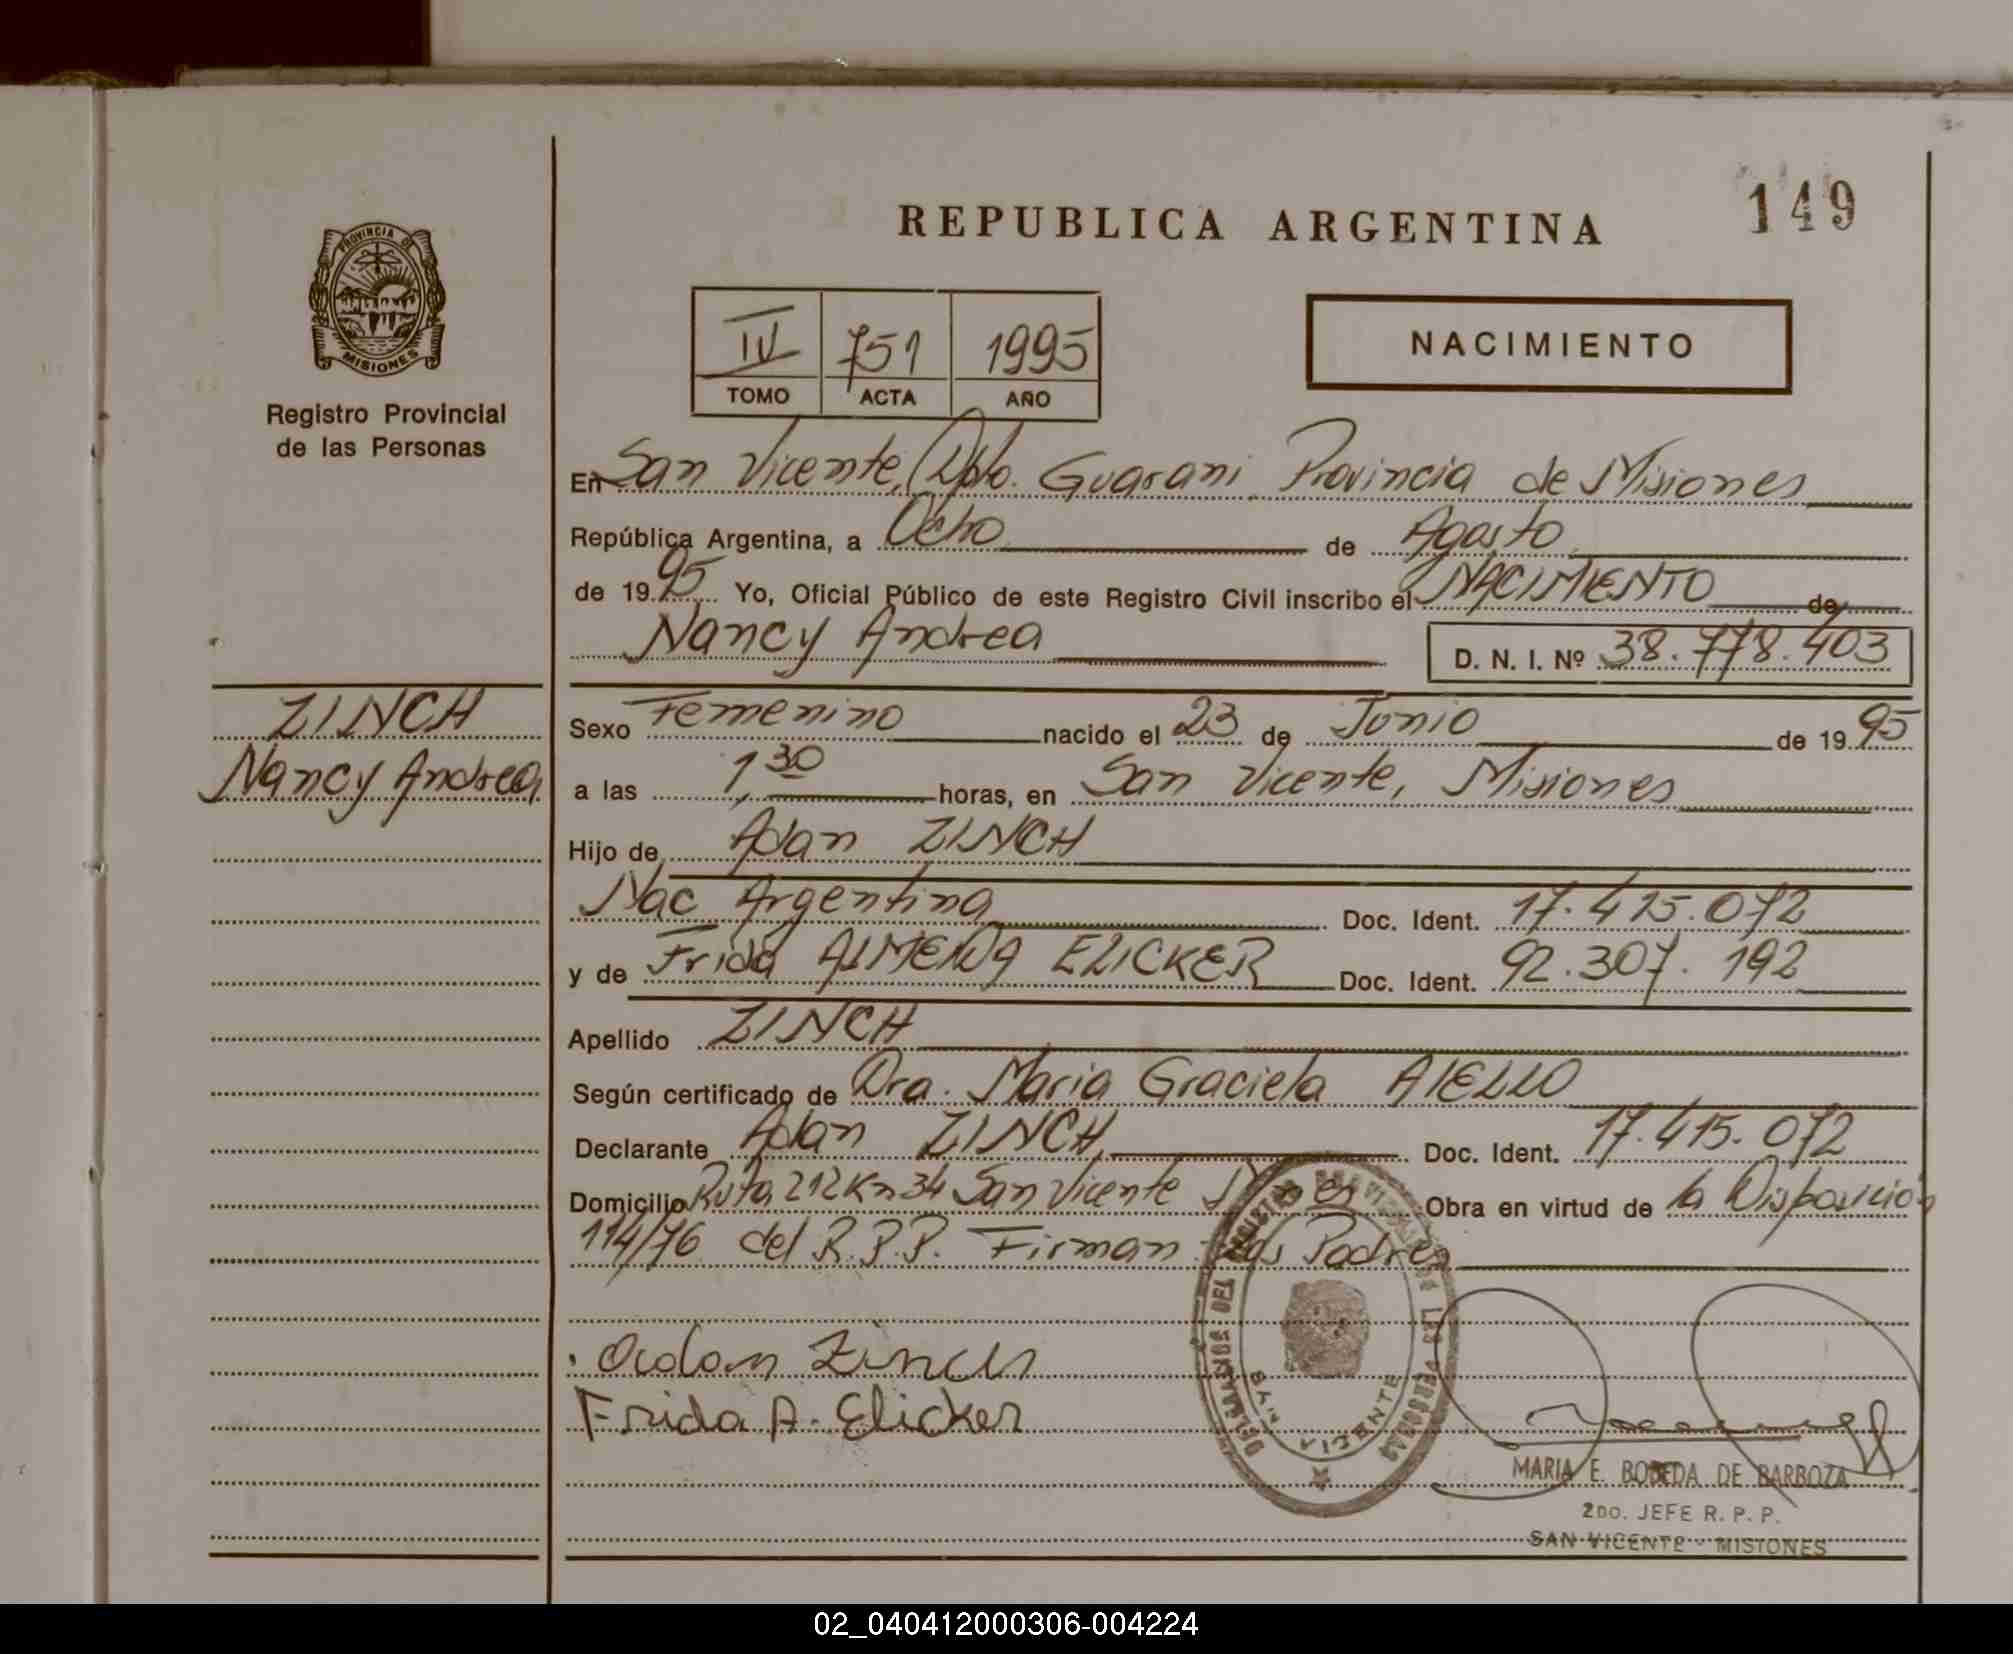 REPUBLICA ARGENTINA
149
PROVINCIA DE
MISIONES
Registro Provincial
de las Personas
IV 751 1995
TOMO ACTA AÑO
NACIMIENTO
En San Vicente, Dpto. Guarani Provincia de Misiones
República Argentina, a Ocho de Agosto
de 1995 Yo, Oficial Público de este Registro Civil inscribo el NACIMIENTO de
Nancy Andrea D. N. I. Nº 38.778.403
ZINCH
Nancy Andrea
Sexo Femenino nacido el 23 de Junio de 1995
a las 1,30 horas, en San Vicente, Misiones
Hijo de Adan ZINCH
Nac Argentina Doc. Ident. 17.415.072
y de Frida ALMENDA ELICKER Doc. Ident. 92.307.192
Apellido ZINCH
Según certificado de Dra. Maria Graciela AIELLO
Declarante Adan ZINCH Doc. Ident. 17.415.072
Domicilio Ruta 212 Km 34 San Vicente Obra en virtud de la Disposición
114/76 del R.P.P. Firman: Los Padres
Adan Zinch
Frida A. Elicker
DELEGACION DEL REGISTRO DE LAS PERSONAS
SAN VICENTE
MARIA E. BOBEDA DE BARBOZA
2DO. JEFE R. P. P.
SAN VICENTE - MISIONES
02_040412000306-004224